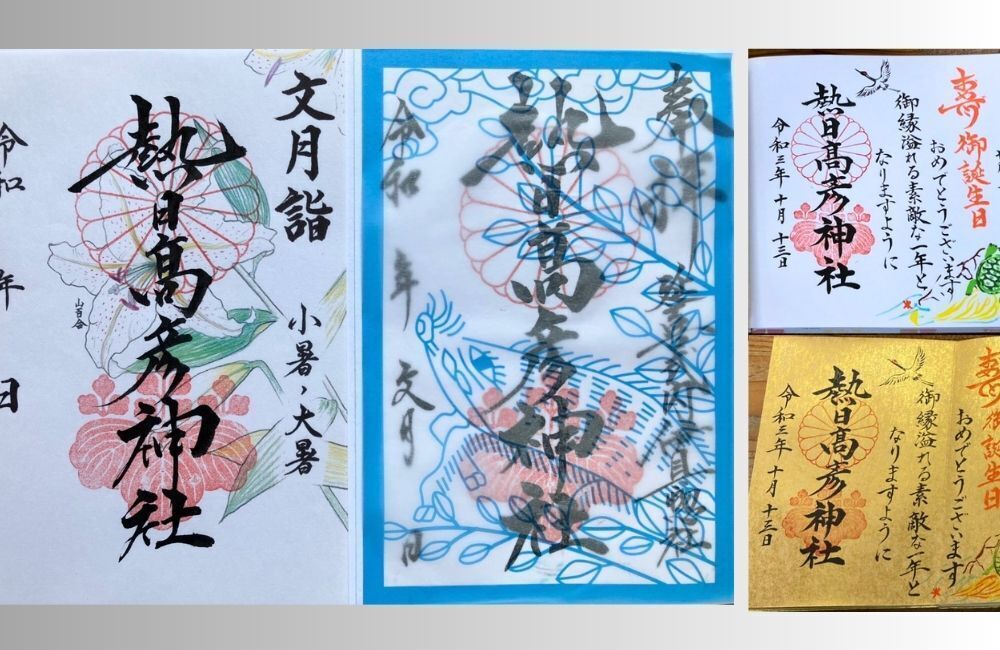 文月詣
小暑、大暑
熱日髙彦神社
山百合
令和 年 日
奉拝
熱日髙彦神社
令和 年 文月 日
壽 御誕生日
おめでとうございます
御縁溢れる素敵な一年と
なりますように
熱日髙彦神社
令和三年 十月 十三日
壽 御誕生日
おめでとうございます
御縁溢れる素敵な一年と
なりますように
熱日髙彦神社
令和三年 十月 十三日